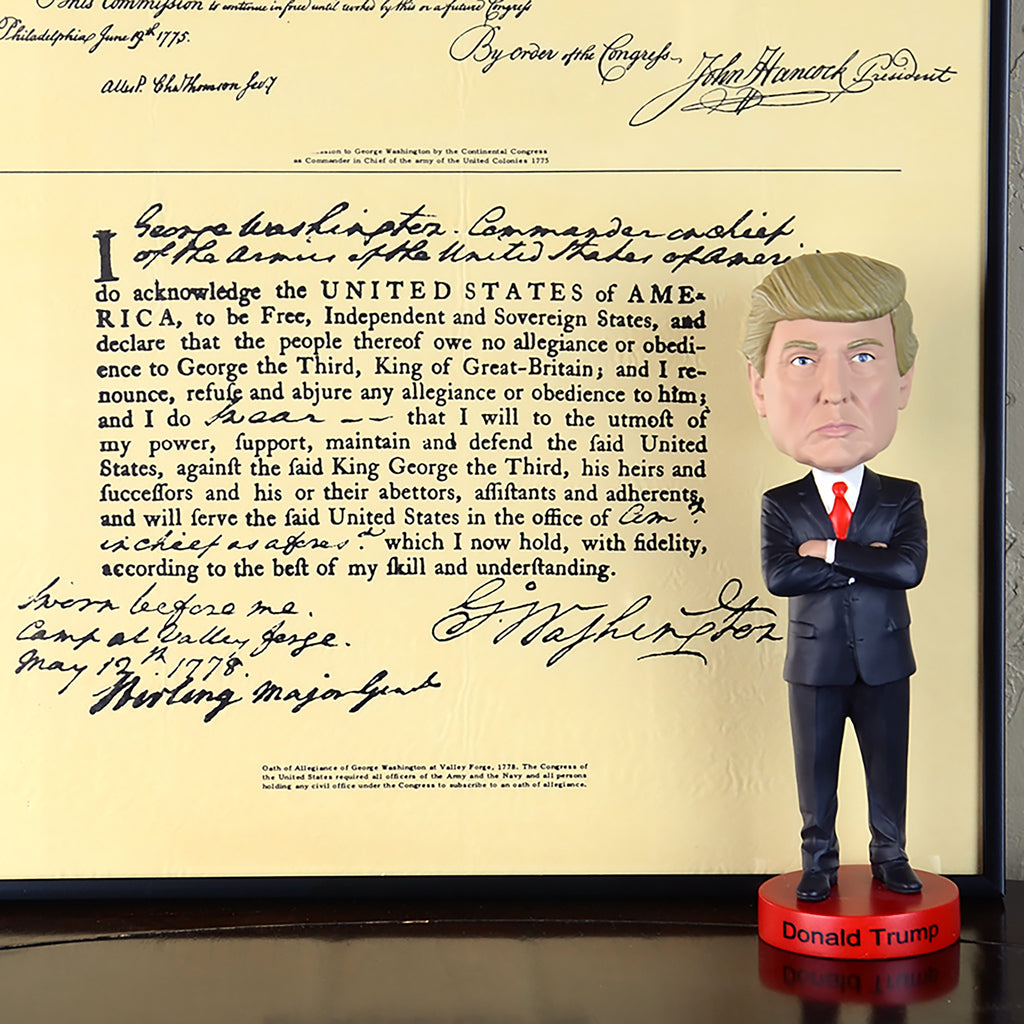 This Commission to continue in force until revoked by this or a future Congress
Philadelphia June 19th 1775.
By order of the Congress
John Hancock President
Attest. Cha Thomson Secy
to George Washington by the Continental Congress
as Commander in Chief of the army of the United Colonies 1775
I George Washington. Commander in chief
of the Armies of the United States of Ameri
do acknowledge the UNITED STATES of AME-
RICA, to be Free, Independent and Sovereign States, and
declare that the people thereof owe no allegiance or obedi-
ence to George the Third, King of Great-Britain; and I re-
nounce, refuſe and abjure any allegiance or obedience to him;
and I do Swear —— that I will to the utmoſt of
my power, ſupport, maintain and defend the ſaid United
States, againſt the ſaid King George the Third, his heirs and
ſucceſſors and his or their abettors, aſſiſtants and adherents,
and will ſerve the ſaid United States in the office of Com.r
in chief as afores.d which I now hold, with fidelity,
according to the beſt of my ſkill and underſtanding.
Sworn before me.
Camp at Valley forge.
May 12th 1778.
G. Washington
Stirling Major Genl
Oath of Allegiance of George Washington at Valley Forge, 1778. The Congress of
the United States required all officers of the Army and the Navy and all persons
holding any civil office under the Congress to subscribe to an oath of allegiance.
Donald Trump